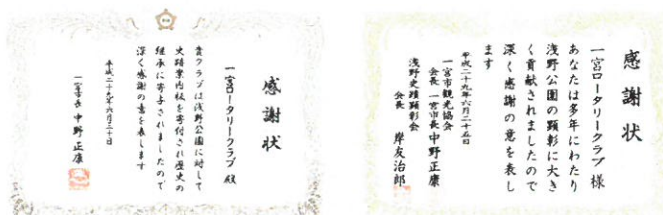 感謝状
一宮ロータリークラブ 殿
貴クラブは浅野公園に対して
史蹟案内板を寄付され歴史の
継承に寄与されましたので
深く感謝の意を表します
平成二十九年六月二十日
一宮市長 中野正康
感謝状
一宮ロータリークラブ 様
あなたは多年にわたり
浅野公園の顕彰に大き
く貢献されましたので
深く感謝の意を表し
ます
平成二十九年六月二十五日
一宮市観光協会
会長 一宮市長 中野正康
浅野史蹟顕彰会
会長 岸友治郎